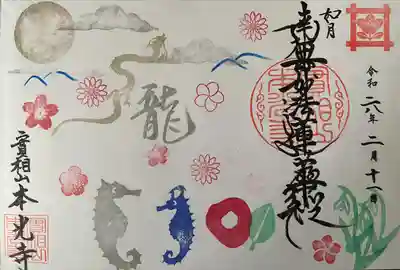 如月
令和六年二月十一日
南無妙法蓮華経
龍
實相山本光寺